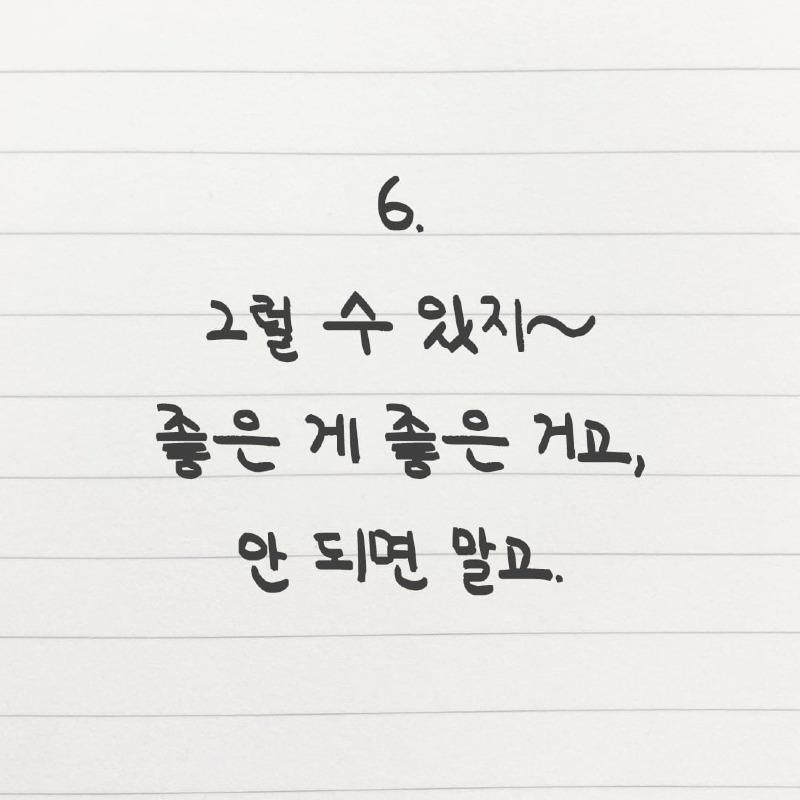 6.
그럴 수 있지~
좋은 게 좋은 거고,
안 되면 말고.